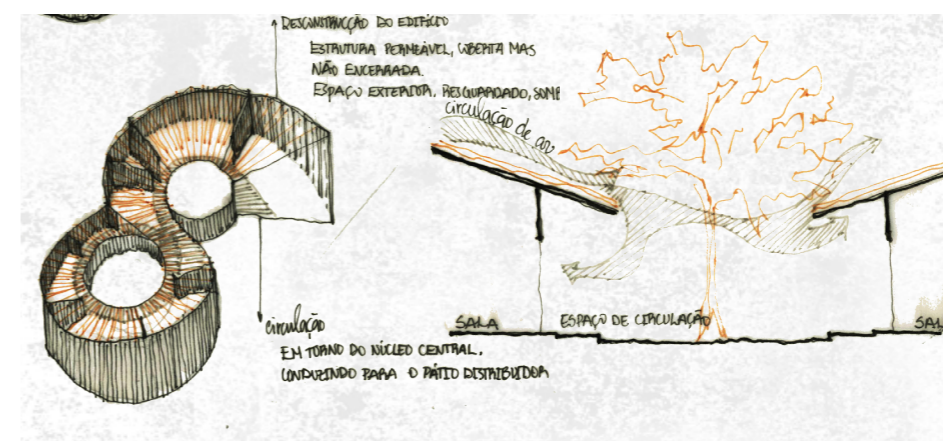 DESCONSTRUCÇÃO DO EDIFÍCIO
ESTRUTURA PERMEÁVEL, COBERTA MAS
NÃO ENCERRADA.
ESPAÇO EXTERIOR, RESGUARDADO, SOMB
circulação de ar
circulação
EM TORNO DO NÚCLEO CENTRAL,
CONDUZINDO PARA O PÁTIO DISTRIBUIDOR
SALA
ESPAÇO DE CIRCULAÇÃO
SAL